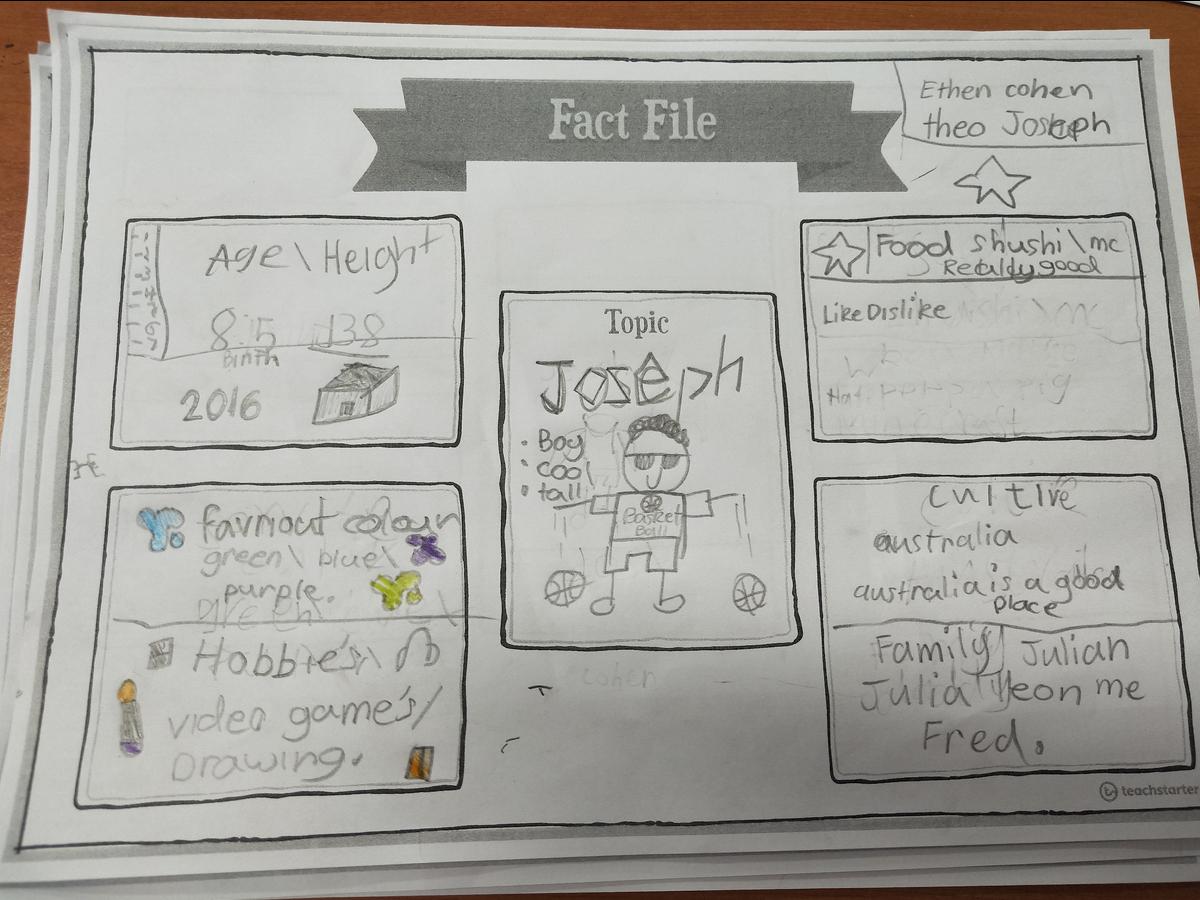 Fact File
Ethen cohen
theo Joseph
Age\Height
8.5 138
Birth
2016
Topic
Joseph
• Boy
• cool
• tall
Basket
Ball
Food shushi\mc
good
Like Dislike
favriout colour
green\ blue\
purple.
Hobbie's\
video game's/
Drawing.
cohen
Cultive
australia
australia is a good
place
Family Julian
Julia Yeon me
Fred.
teachstarter